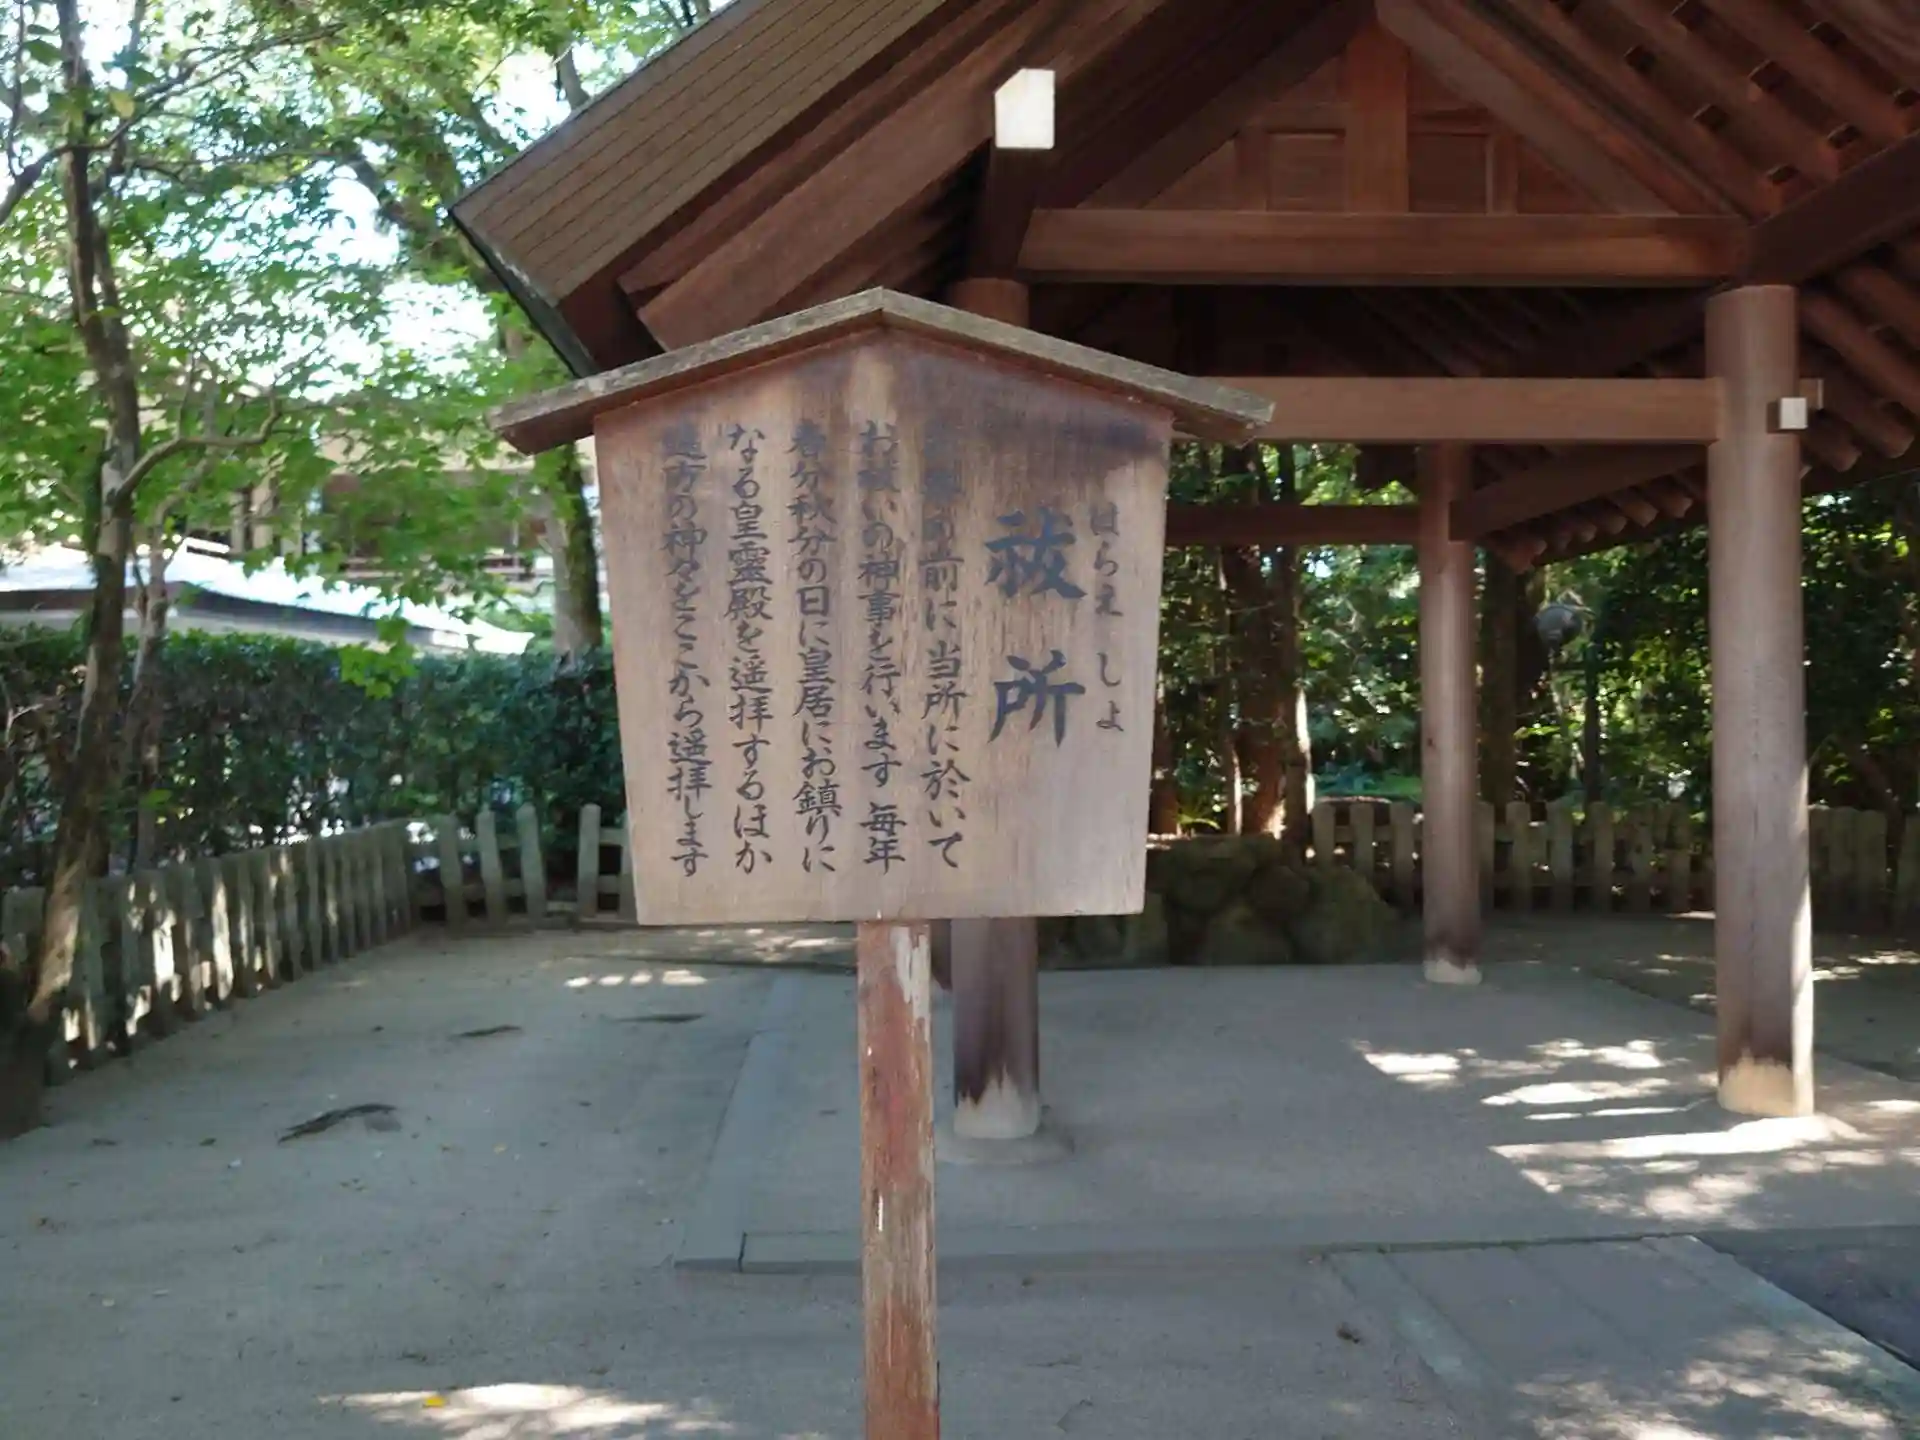 はらえしよ
祓所
の前に当所に於いて
お祓いの神事を行います 毎年
春分秋分の日に皇居にお鎮りに
なる皇霊殿を遥拝するほか
遠方の神々をここから遥拝します